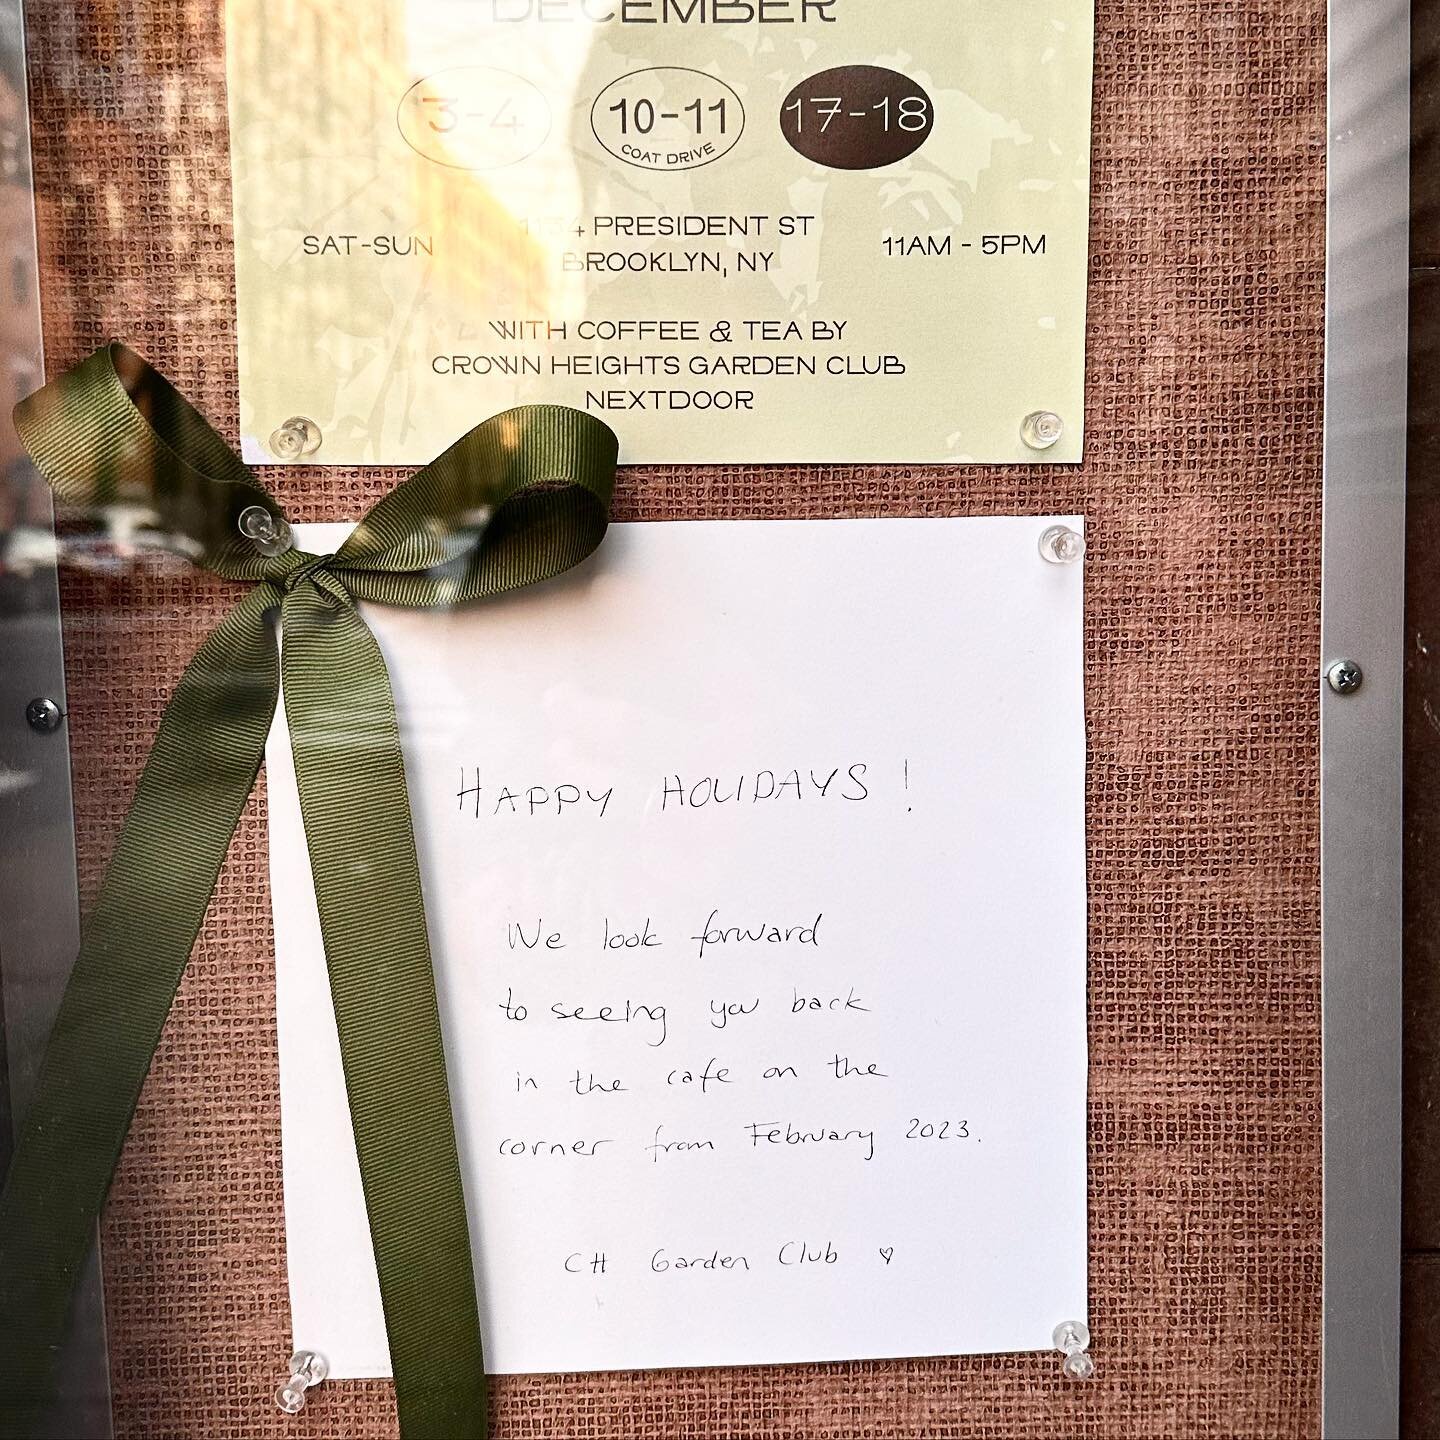 DECEMBER
3-4 10-11 17-18
COAT DRIVE
1134 PRESIDENT ST
SAT-SUN 11AM - 5PM
BROOKLYN, NY
WITH COFFEE & TEA BY
CROWN HEIGHTS GARDEN CLUB
NEXTDOOR
HAPPY HOLIDAYS!
We look forward
to seeing you back
in the cafe on the
corner from February 2023.
CH Garden Club ♡